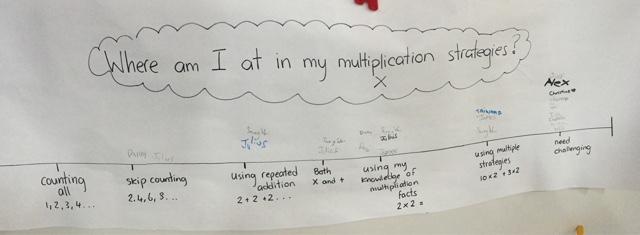 Where am I at in my multiplication strategies?
X
Julius
Alex
Christine
counting
all
1, 2, 3, 4...
skip counting
2, 4, 6, 8...
using repeated
addition
2 + 2 + 2...
Both
X and +
using my
knowledge of
multiplication
facts
2 x 2 =
using multiple
strategies
10 x 2 + 3 x 2
need
challenging